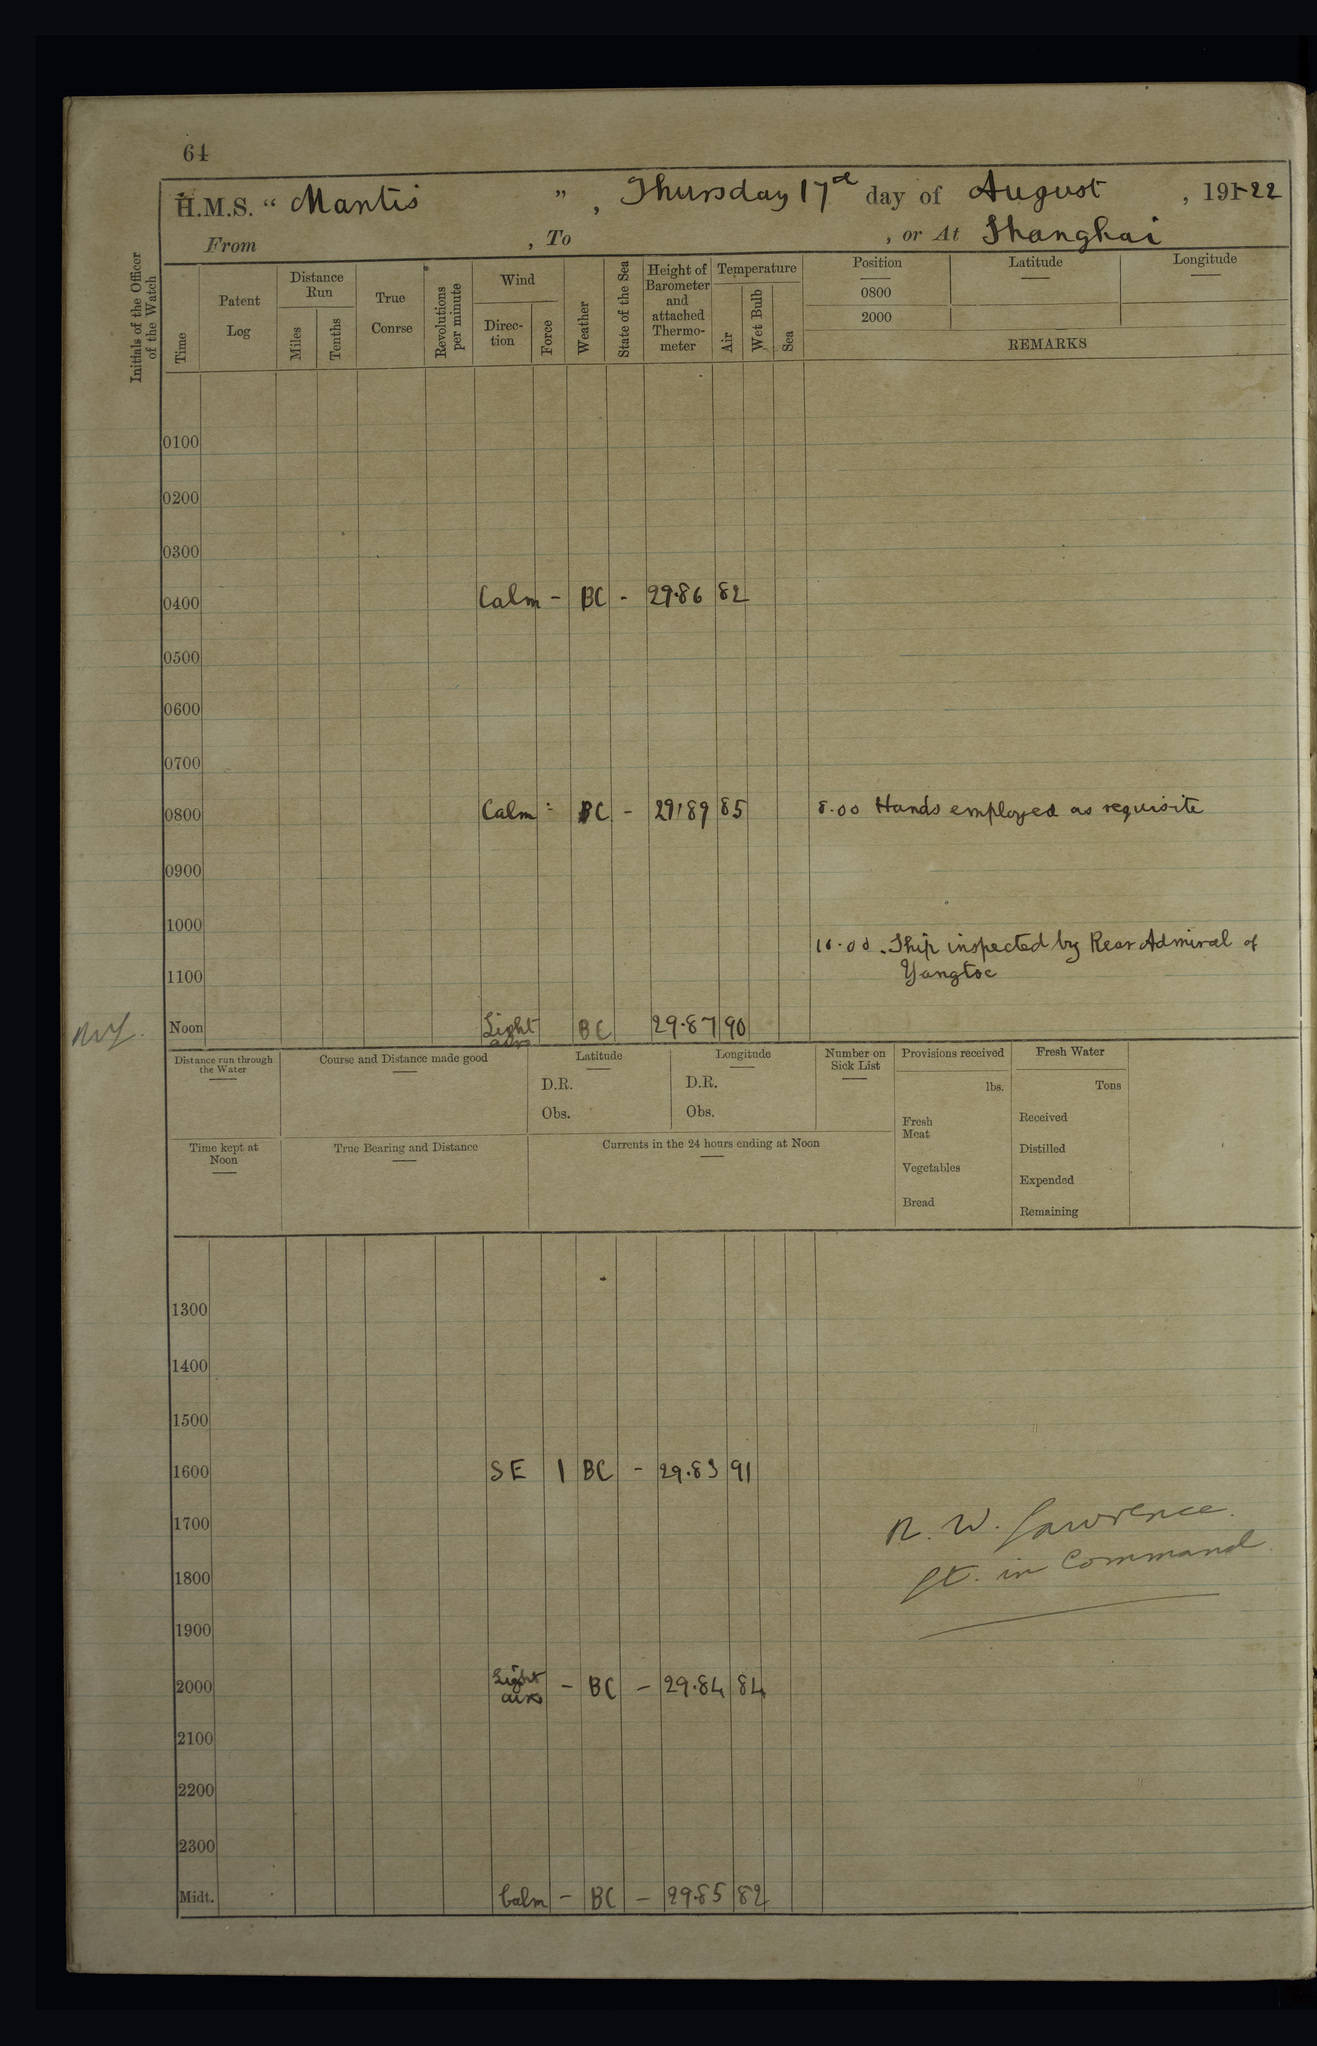 64
H.M.S. “ Mantis ” , Thursday 17th day of August , 191-22
From , To , or At Shanghai
Initials of the Officer of the Watch
Time
Patent Log
Distance Run
Miles
Tenths
True Course
Revolutions per minute
Wind
Direc-tion
Force
Weather
State of the Sea
Height of Barometer and attached Thermo-meter
Temperature
Air
Wet Bulb
Sea
Position
0800
2000
Latitude
Longitude
REMARKS
0100
0200
0300
0400 Calm - BC - 29.86 82
0500
0600
0700
0800 Calm - BC - 29.89 85 8.00 Hands employed as requisite
0900
1000 10.00. Ship inspected by Rear Admiral of
1100 Yangtse
Noon Light airs BC 29.87 90
Distance run through the Water
Course and Distance made good
Latitude
D.R.
Obs.
Longitude
D.R.
Obs.
Number on Sick List
Provisions received
lbs.
Fresh Meat
Vegetables
Bread
Fresh Water
Tons
Received
Distilled
Expended
Remaining
Time kept at Noon
True Bearing and Distance
Currents in the 24 hours ending at Noon
1300
1400
1500
1600 SE 1 BC - 29.83 91
1700 R. W. Lawrence.
1800 Lt. in Command.
1900
2000 Light airs - BC - 29.84 84
2100
2200
2300
Midt. Calm - BC - 29.85 82